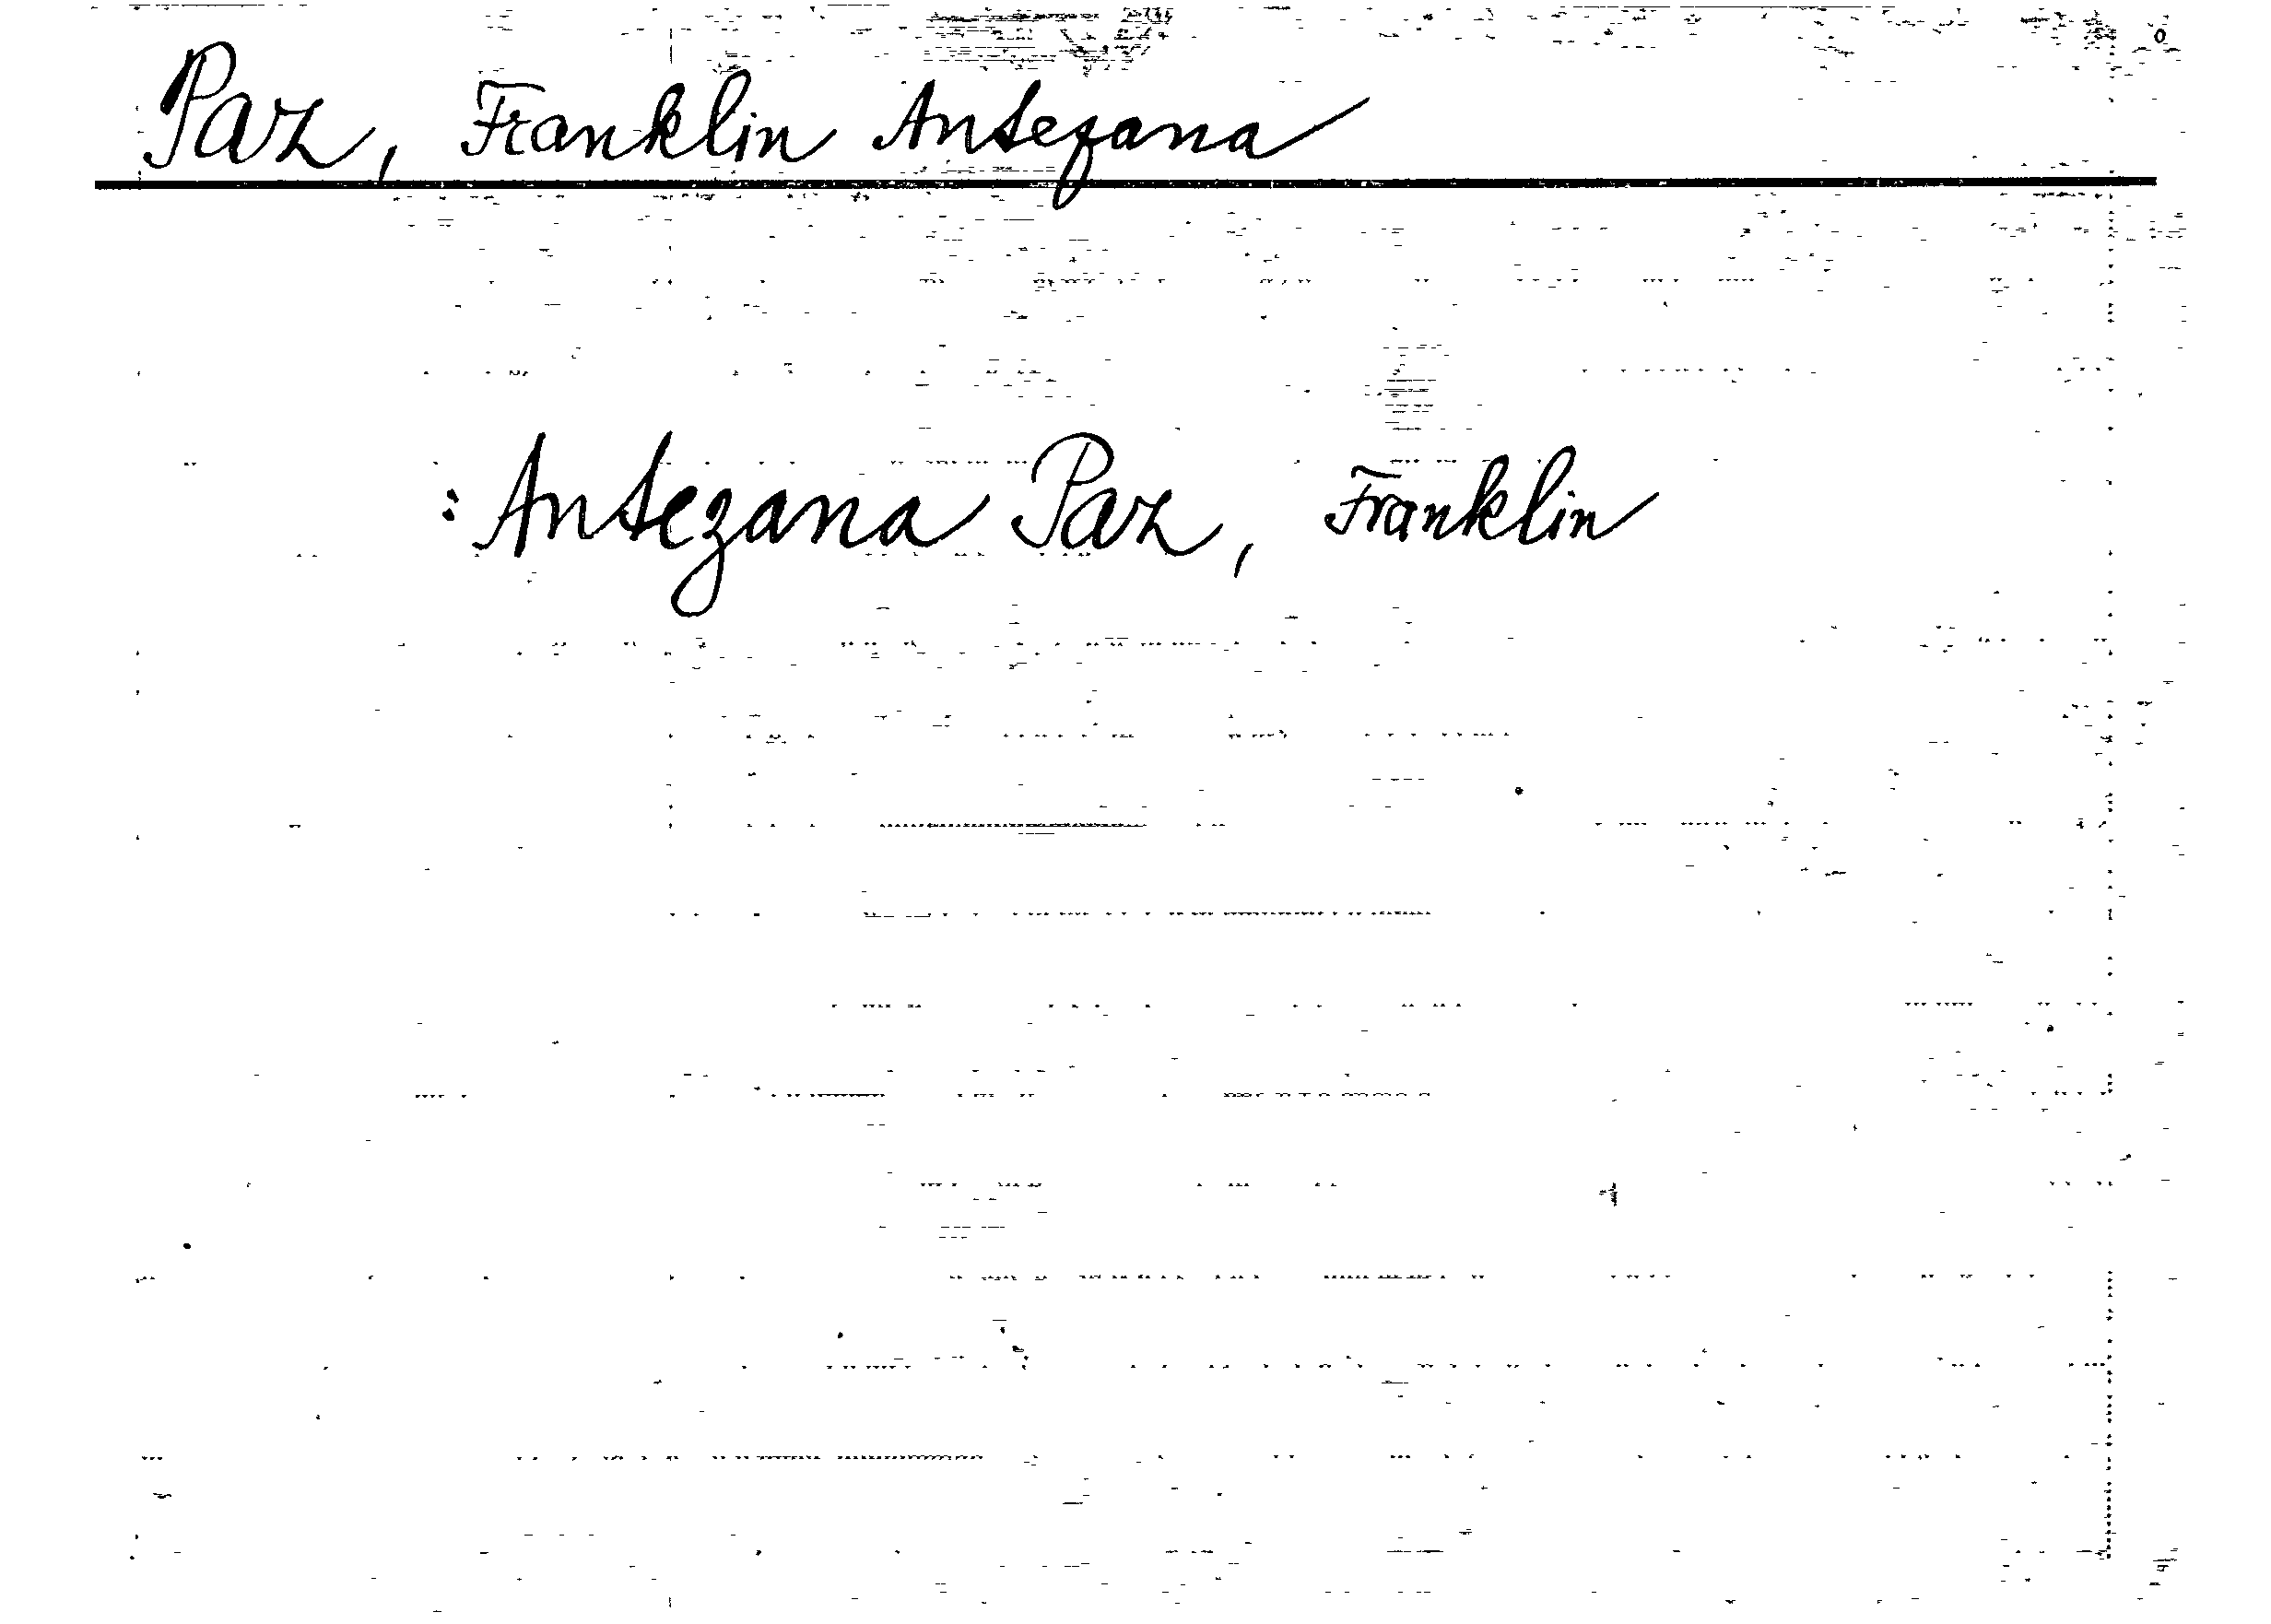 Paz, Franklin Antezana
: Antezana Paz, Franklin